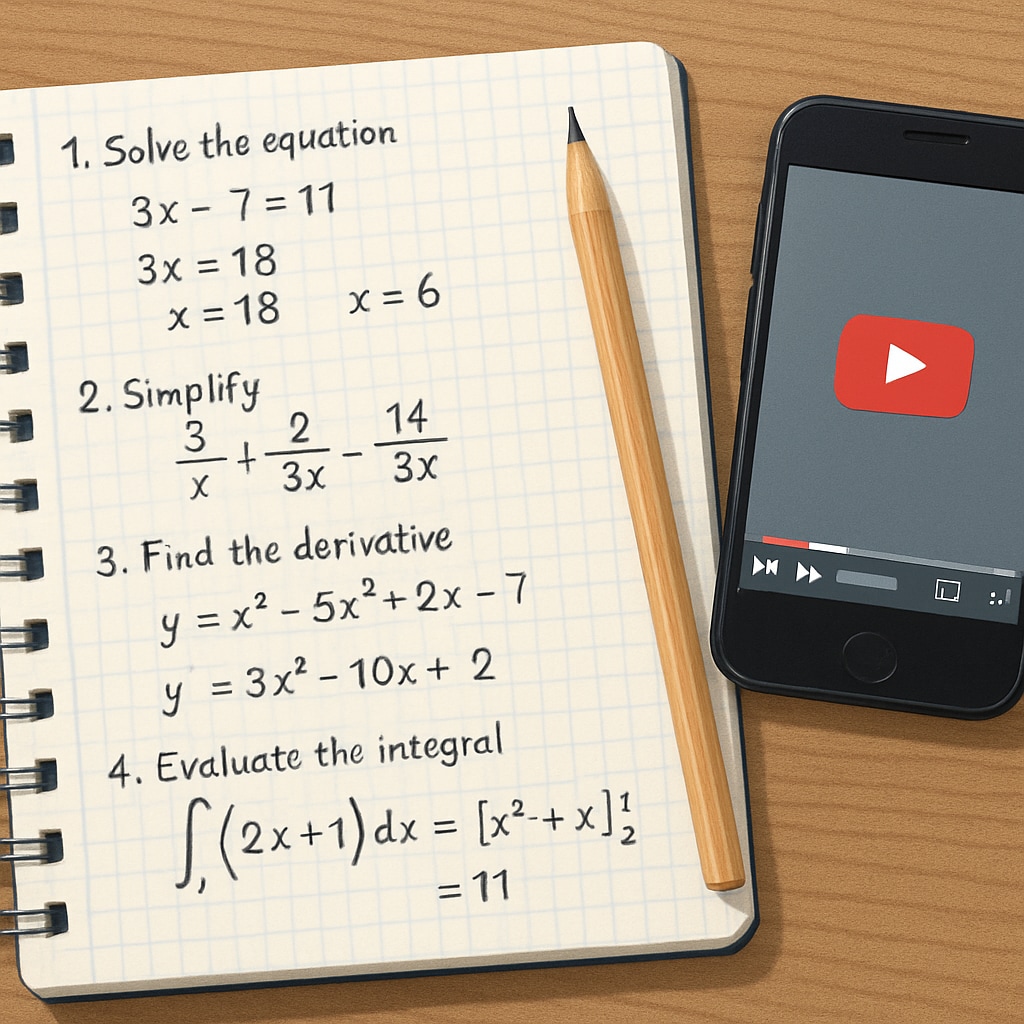 1. Solve the equation
3x - 7 = 11
3x = 18
x = 18 x = 6
2. Simplify
3/x + 2/3x - 14/3x
3. Find the derivative
y = x² - 5x² + 2x - 7
y = 3x² - 10x + 2
4. Evaluate the integral
∫, (2x+1) dx = [x²-+ x]¹₂
= 11